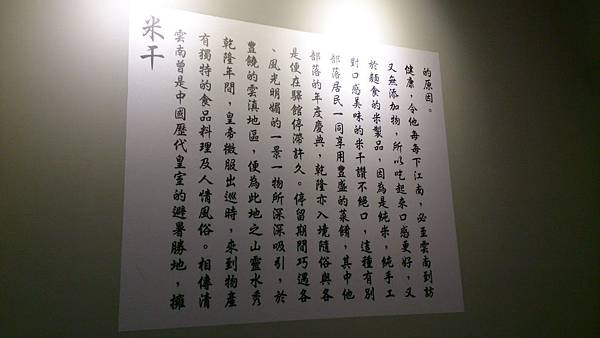 米干
雲南曾是中國歷代皇室的避暑勝地，擁
有獨特的食品料理及人情風俗。相傳清
乾隆年間，皇帝微服出巡時，來到物產
豐饒的雲滇地區，便為此地之山靈水秀
、風光明媚的一景一物所深深吸引，於
是便在驛館停滯許久。停留期間巧遇各
部落的年度慶典，乾隆亦入境隨俗與各
部落居民一同享用豐盛的菜餚，其中他
對口感美味的米干讚不絕口，這種有別
於麵食的米製品，因為是純米，純手工
又無添加物，所以吃起來口感更好，又
健康，令他每每下江南，必至雲南到訪
的原因。